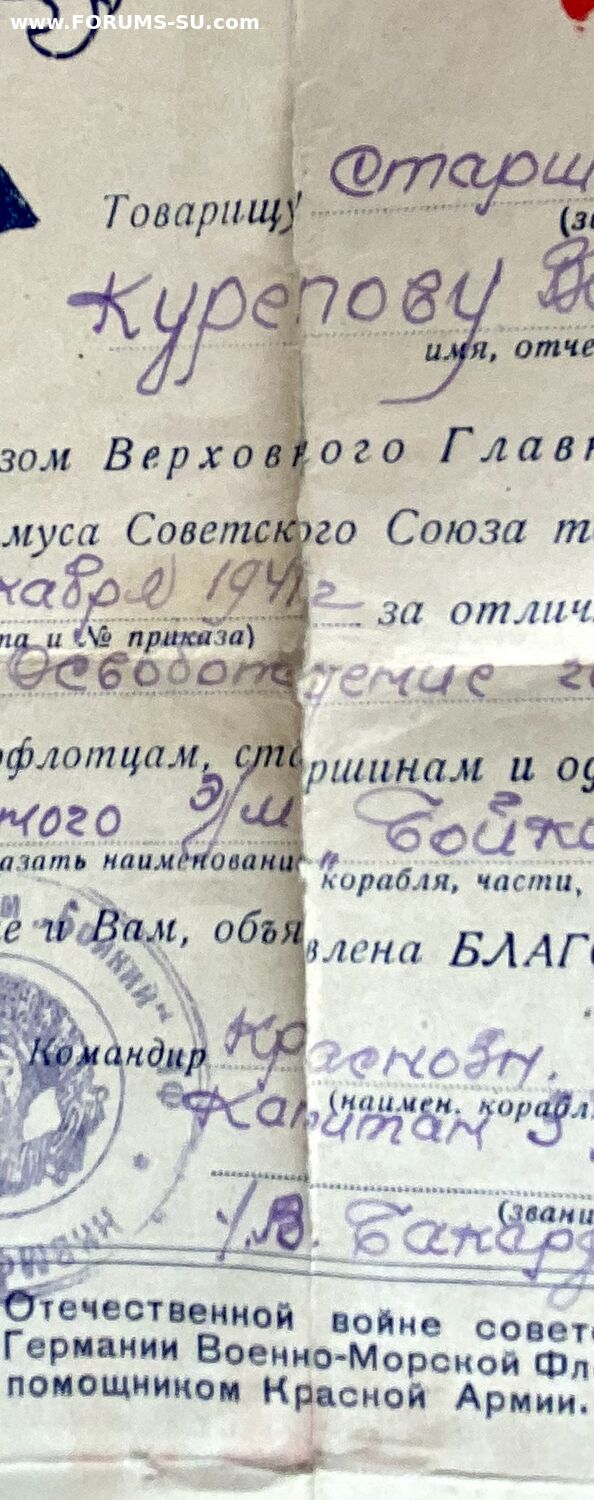 www.FORUMS-SU.com
Товарищу Старш
(з
Курепову В
имя, отче
зом Верховного Глав
муса Советского Союза т
кабря 1941г за отлич
та и № приказа)
Освобождение г
офлотцам, старшинам и о
ного Э/м "Бойк
азать наименование корабля, части,
е и Вам, объявлена БЛАГ
"БОЙКИЙ"
Командир Краснозн.
(наимен. корабл
Капитан 3
(звани
В. Бакард
Отечественной войне совет
Германии Военно-Морской Фл
помощником Красной Армии.